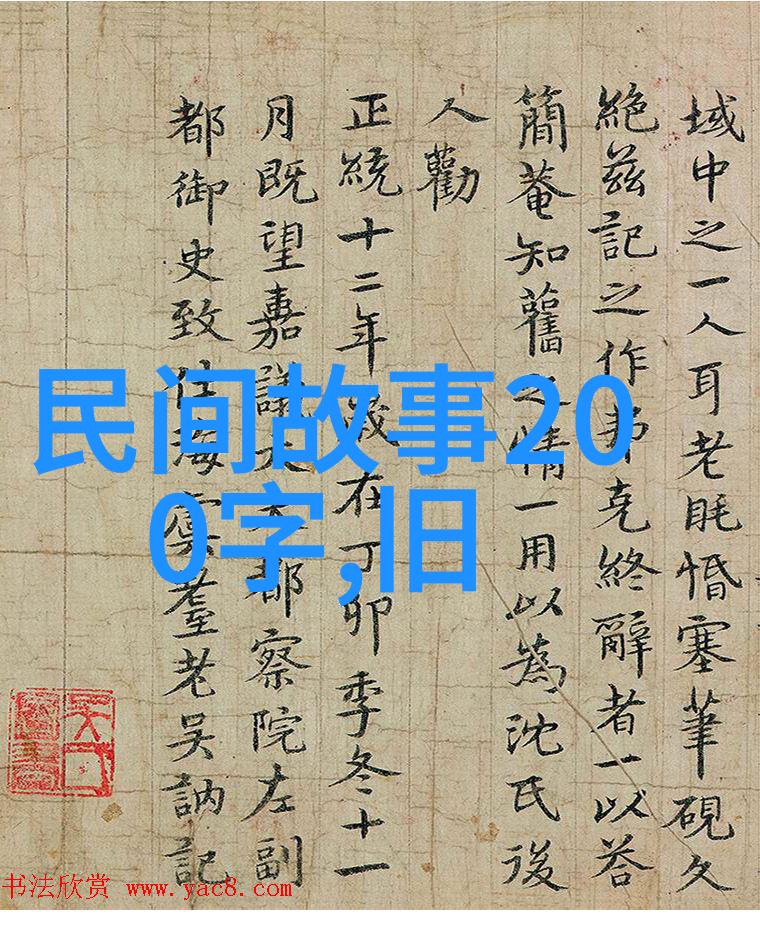 域中之一人耳老眊惛塞筆硯久
絶茲記之作弗克終辭者一以荅
簡菴知舊之情一用以為沈氏後
人勸
正統十二年歲在丁卯季冬十一
月既望嘉議大夫都察院左副
都御史致仕海虞耋老吳訥記
民间故事20
0字,旧
书法欣赏 www.yac8.com